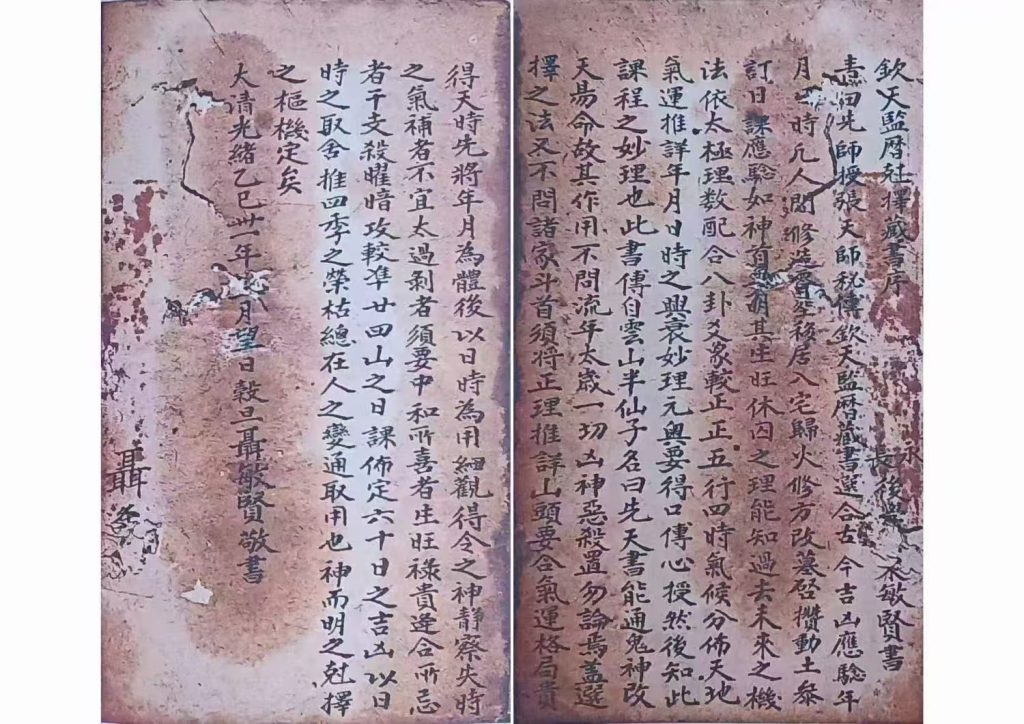 欽天監曆尅擇藏書序 後學 永敏賢書
書曰先師授張天師秘傳欽天監曆藏書選合古今吉凶應驗年
月日時凡人間修造豎移居入宅歸火修方改墓啓攢動土叅
訂日課應驗如神首要明其生旺休囚之理能知過去未來之機
法依太極理数配合八卦爻象較正正五行四時氣候分佈天地
氣運推詳年月日時之興衰妙理元奥要得口傳心授然後知此
課程之妙理也此書傳自雲山半仙子名曰先天書能通鬼神改
天易命故其作用不問流年太歲一切凶神惡殺置勿論焉蓋選
擇之法又不問諸家斗首須將正理推詳山頭要合氣運格局貴
得天時先將年月為體後以日時為用細觀得令之神靜察失時
之氣補者不宜太過剝者須要中和所喜者生旺祿貴逢合所忌
者干支殺曜暗攻較準廿四山之日課佈定六十日之吉凶以日
時之取舍推四季之榮枯總在人之變通取用也神而明之尅擇
之樞機定矣
大清光緒乙巳卅一年月望日穀旦聶敏賢敬書
聶